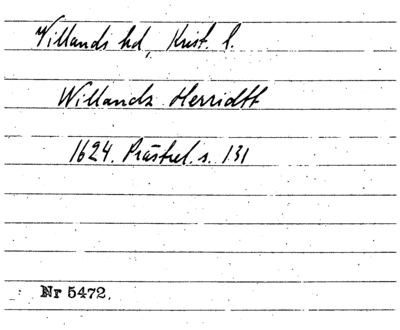 Villands hd, Krist. l.
Willandz Herridtt
1624. Prästrel. s. 131
Nr 5472.